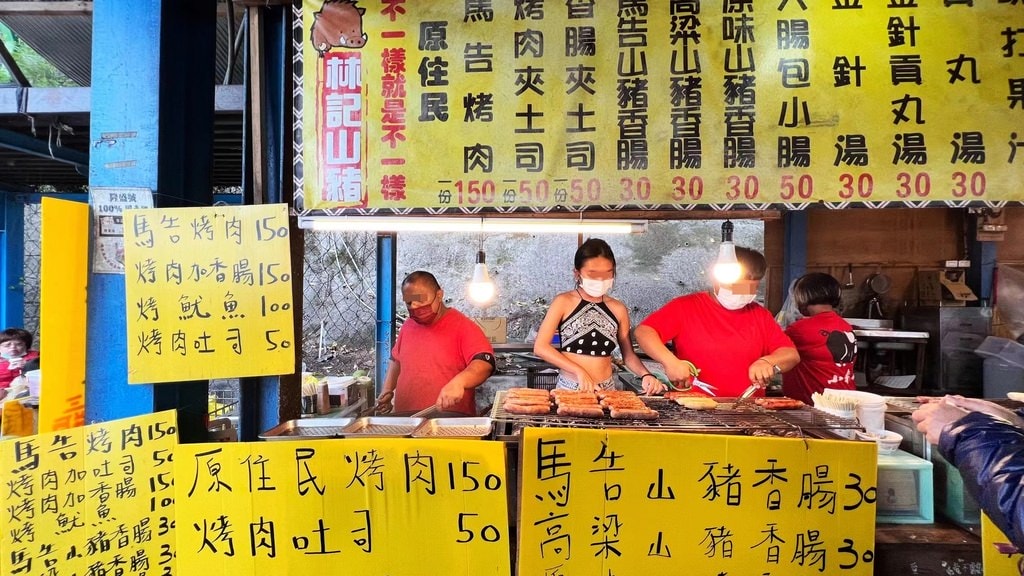 林記山豬
不一樣就是不一樣
原住民
馬告烤肉 一份150
烤肉夾土司 一份50
香腸夾土司 一份50
馬告山豬香腸 30
高粱山豬香腸 30
原味山豬香腸 30
大腸包小腸 50
金針湯 30
金針貢丸湯 30
丸湯 30
現打果汁
100%
馬告烤肉150
烤肉加香腸150
烤魷魚100
烤肉吐司50
馬告烤肉150
烤肉吐司50
烤肉加香腸150
烤魷魚100
山豬香腸30
馬告山豬香腸30
原住民烤肉150
烤肉吐司 50
馬告山豬香腸30
高梁山豬香腸30